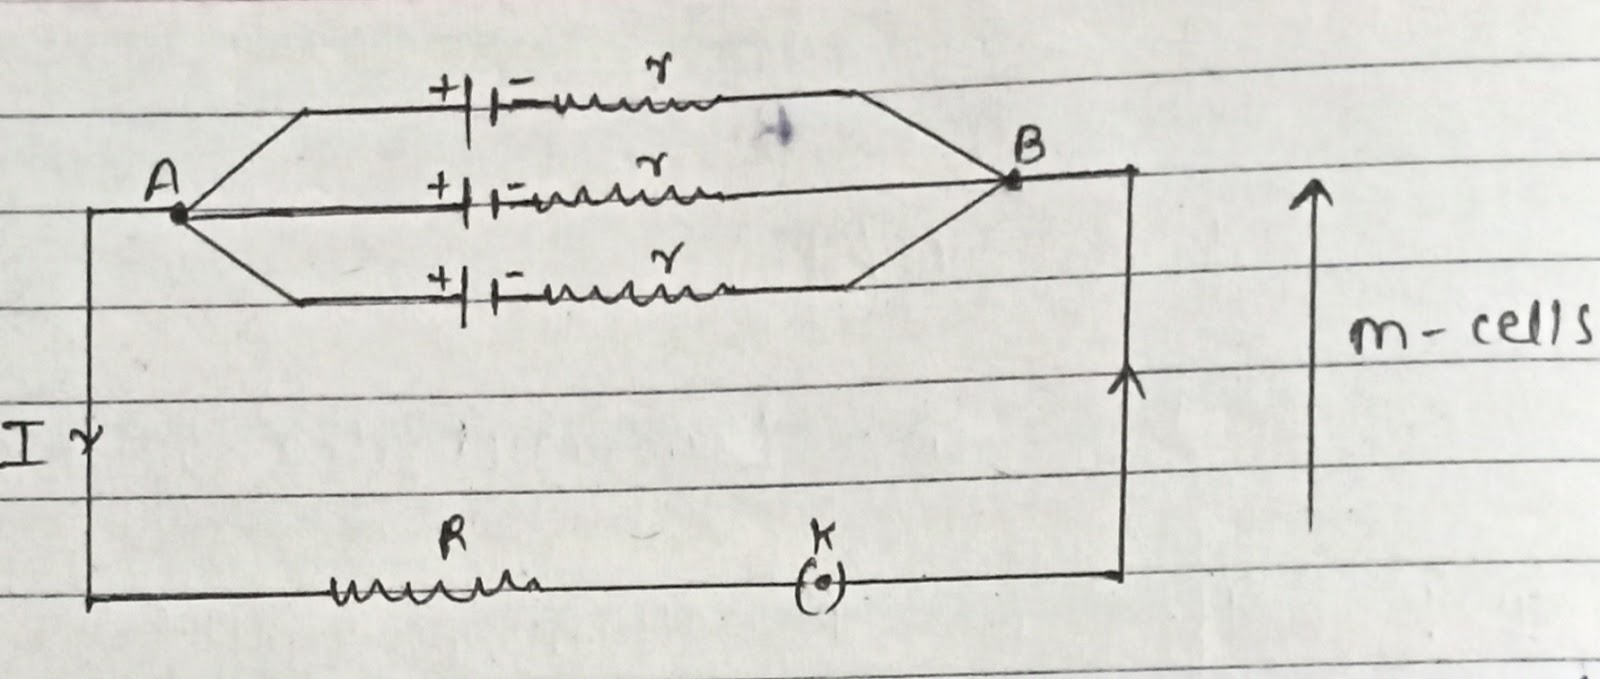 + - r
A + - r B
+ - r
m- cells
I
R K